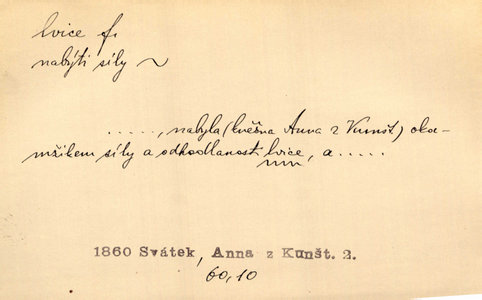 lvice f.
nabýti síly ~
....., nabyla (kněžna Anna z Kunšt) oka-
mžikem síly a odhodlanost lvice, a .....
1860 Svátek, Anna z Kunšt. 2.
60,10